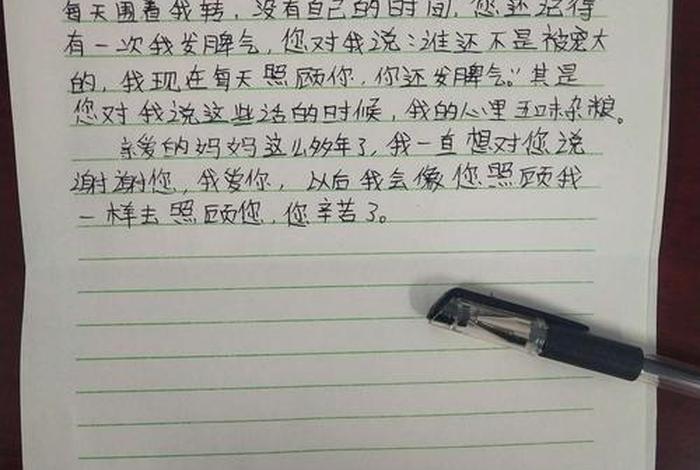 每天围着我转，没有自己的时间，您还记得
有一次我发脾气，您对我说：谁还不是被宠大
的，我现在每天照顾你，你还发脾气。”其是
您对我说这些话的时候，我的心里五味杂粮。
亲爱的妈妈这么多年了，我一直想对您说
谢谢您，我爱你，以后我会像您照顾我
一样去照顾您，您辛苦了。